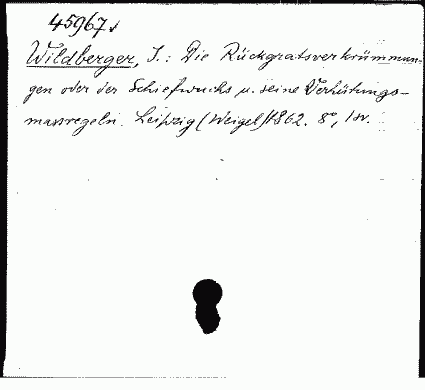 45967
Wildberger, J.: Die Rückgratsverkrümmun-
gen oder der Schiefwuchs u. seine Verhütungs-
massregeln. Leipzig (Weigel) 1862. 8°,